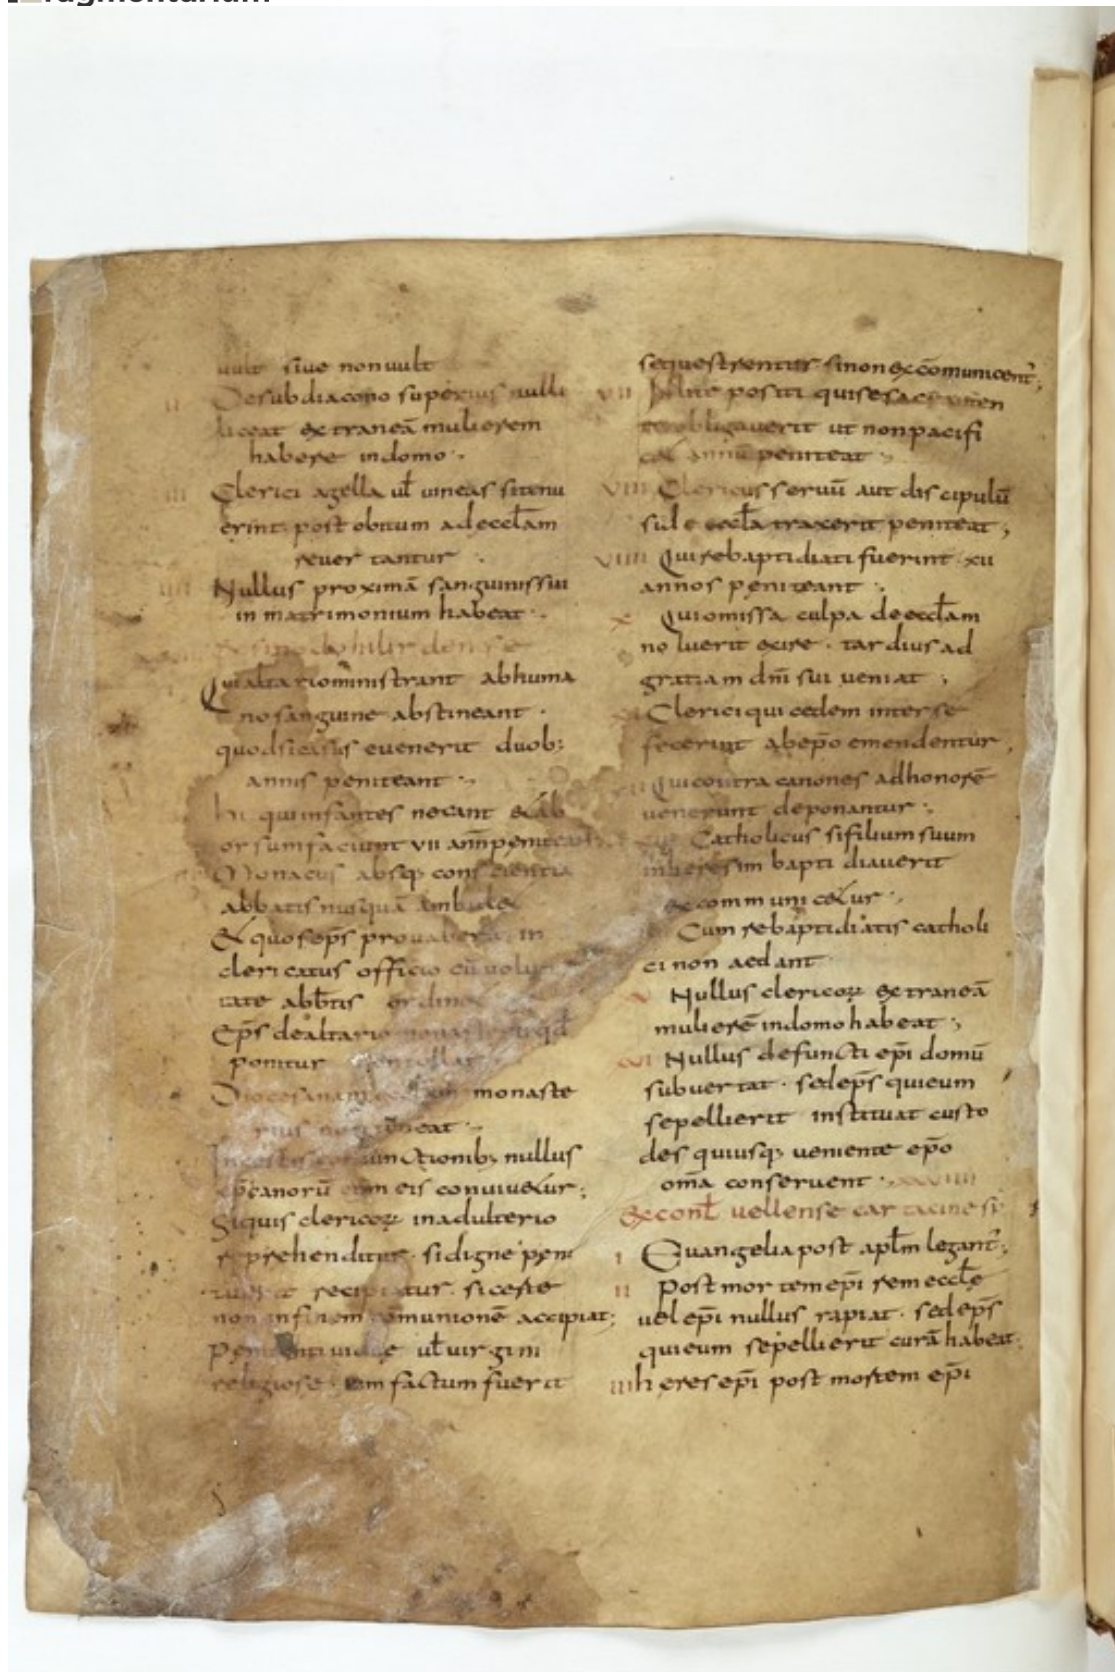 uult siue non uult
II Desubdiacono superius nulli
liceat extraneā mulierem
habere indomo
III Clerici agella ul̄ uineas sitenu
erint post obitum adeccl̄am
reuertantur
IIII Nullus proximā sanguinissui
in matrimonium habeat
Quialtariom̄inistrant abhuma
nosanguine abstineant
quodsicasus euenerit duob;
annis peniteant
hi quiinfantes necant &ab
orsumfaciunt VII ann̄ peniteant
Monacus absq; conscientia
abbatis nusquā ambul&
&quosep̄s prouauerit in
clericatus officio cū uolun
tate abb̄tis ordin&
Ep̄s dealtario monasterii qd̄
ponitur
Diocesanam monaste
rius non teneat
Incestis coniunctionib; nullus
xp̄canorū eis conuiu&ur;
Siquis clericoꝝ inadulterio
reprehenditur sidigne peni
tuerit recipiatur siceste
non infinem com̄unionē accipiat;
Penitenti uidue ul̄ uirgini
religiose factum fuerit
sequestrentur sinon excōmunicent̄;
VII Inlite positi quisesacramen
to obligauerit ut nonpacifi
c& annū peniteat
VIII Clericus seruū aut discipulū
sul e eccl̄a traxerit peniteat,
VIIII Quirebaptidiati fuerint XII
annos peniteant
X Quiomissa culpa deeccl̄am
noluerit exire tardius ad
gratiam dn̄i sui ueniat;
XI Clericiqui cedem interse
fecerint abep̄o emendentur,
XII Quicontra canones adhonorē
uenerunt deponantur;
Catholicus sifilium suum
inheresim baptidiauerit
excommunic&ur
Cum rebaptidiatis catholi
ci non aedant
V Nullus clericoꝝ extraneā
mulierē indomo habeat;
XVI Nullus defuncti ep̄i domū
subuertat sedep̄s quieum
sepellierit instituat custo
des quiusq; ueniente ep̄o
om̄a conseruent
&conl̄ uellense cartacinesi
I Euangelia post apl̄m legant̄;
II Post mortem ep̄i rem eccl̄e
uel ep̄i nullus rapiat sedep̄s
quieum sepellierit curā habeat
III heres ep̄i post mortem ep̄i